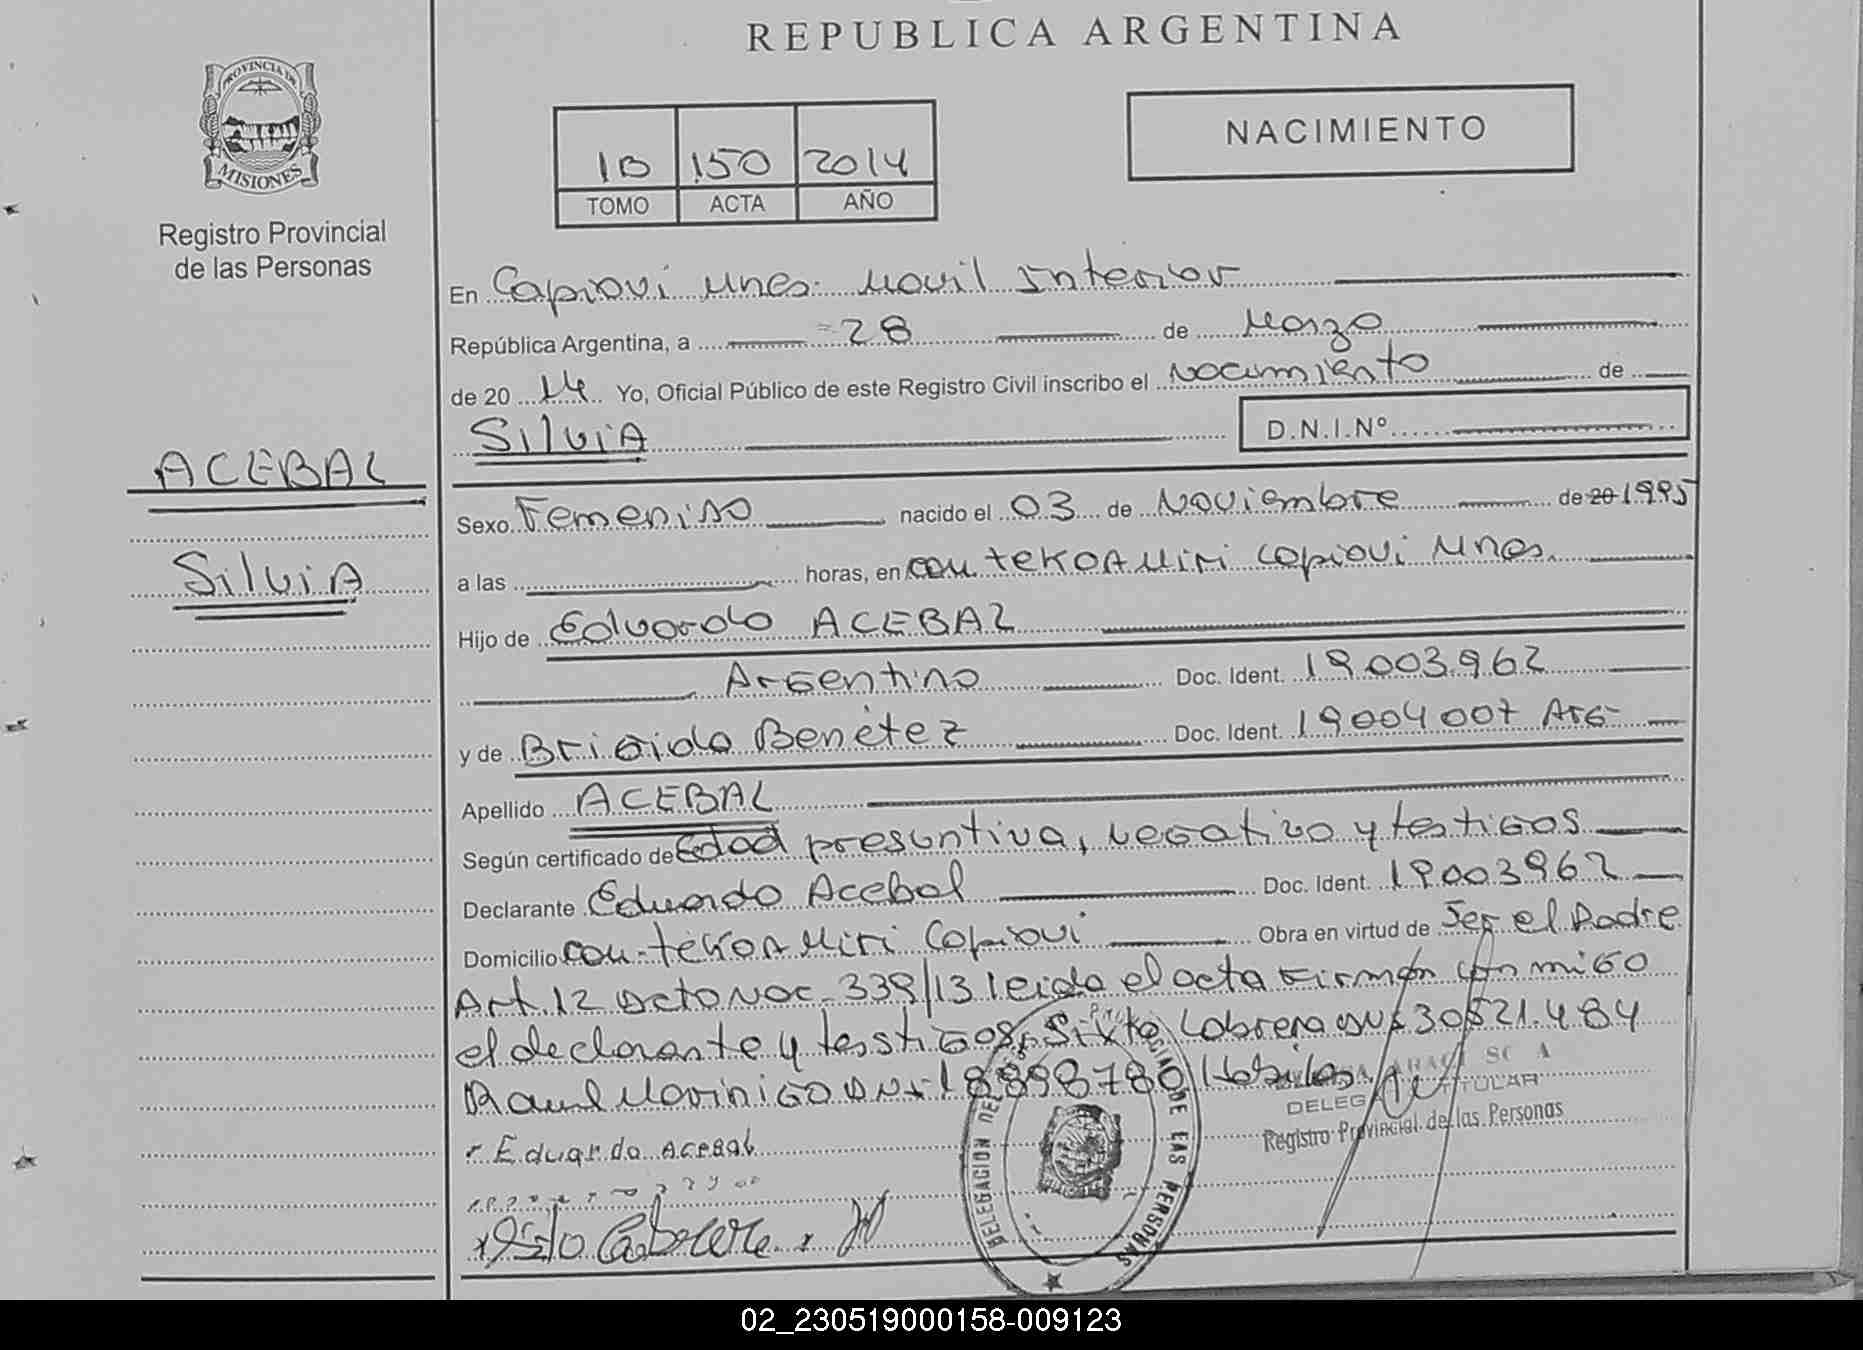 REPUBLICA ARGENTINA
PROVINCIA DE
MISIONES
Registro Provincial
de las Personas
1B 150 2014
TOMO ACTA AÑO
NACIMIENTO
En Capiovi Mnes. Movil Interior
República Argentina, a 28 de Marzo
de 2014 Yo, Oficial Público de este Registro Civil inscribo el Nacimiento de
Silvia D.N.I.Nº
ACEBAL
Silvia
Sexo Femenino nacido el 03 de Noviembre de 20 1995
a las horas, en com tekoa Miri Capiovi Mnes.
Hijo de Eduardo ACEBAL
Argentino Doc. Ident. 19.003.962
y de Brigida Benétez Doc. Ident. 19004007 Arg-
Apellido ACEBAL
Según certificado de Edad presuntiva, negativo y testigos
Declarante Eduardo Acebal Doc. Ident. 19003962
Domicilio com-tekoa Miri Capiovi Obra en virtud de Ser el Padre
Art. 12 Dcto Nac. 339/13 leida el acta firman con migo
el declarante y testigos, Sixto Cabrera DNI 30521.484
Raul Marinigo DNI 18898780 Habiles
DELEG TITULAR
Registro Provincial de las Personas
Eduardo Acebal
Sixto Cabrera
DELEGACION DE LAS PERSONAS
02_230519000158-009123